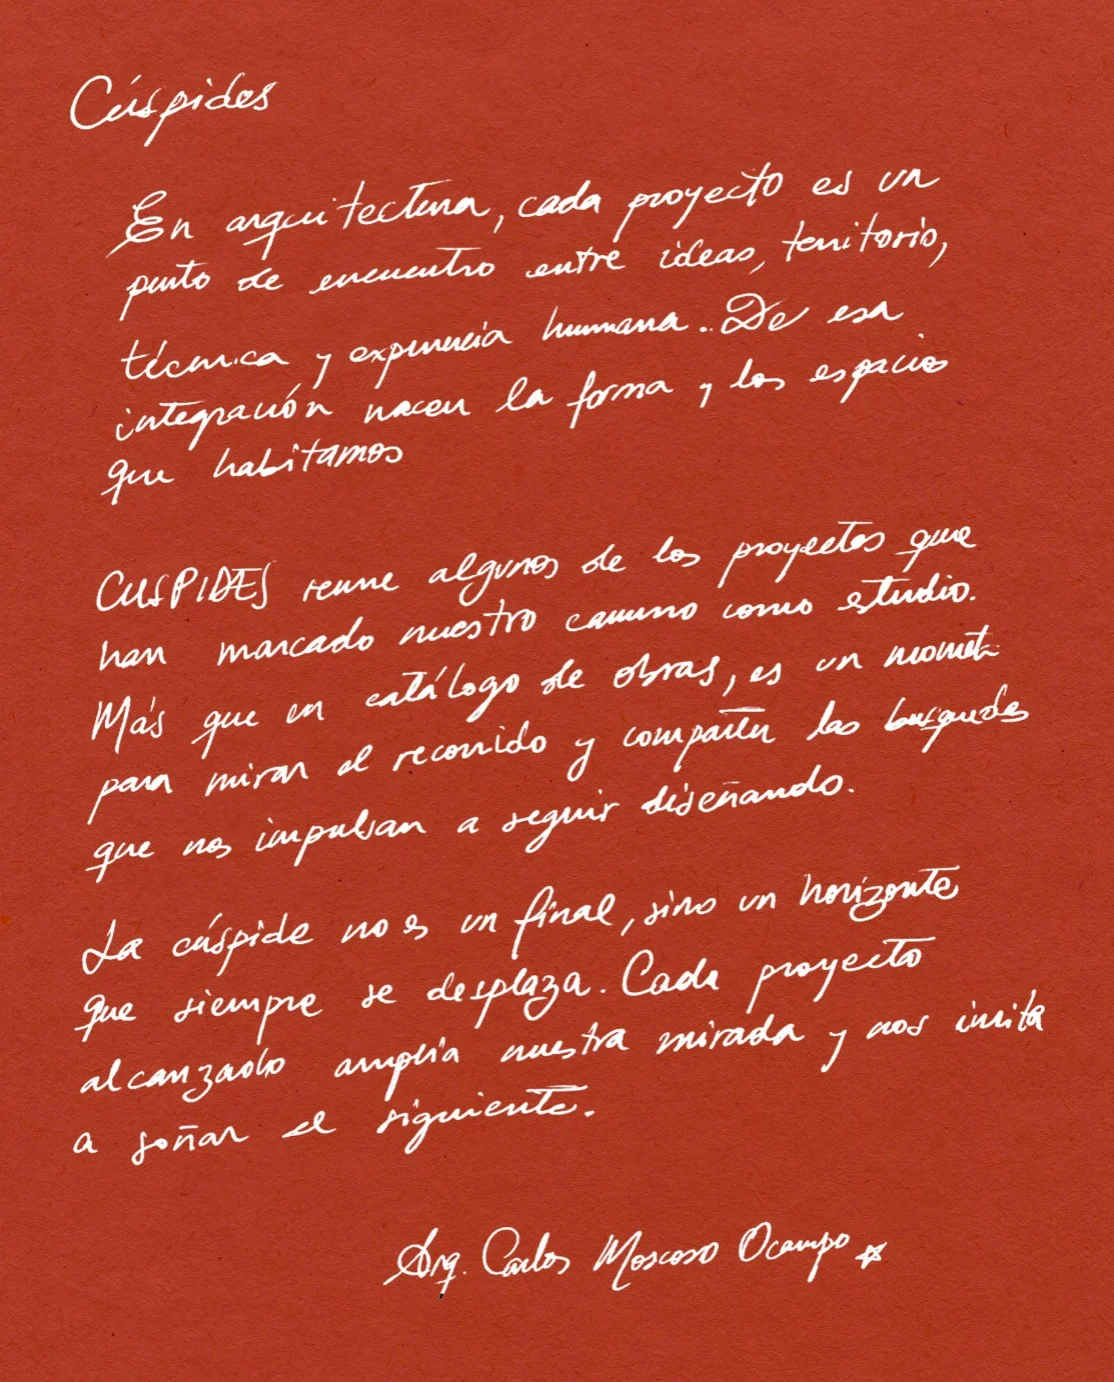 Cúspides
En arquitectura, cada proyecto es un
punto de encuentro entre ideas, territorio,
técnica y experiencia humana. De esa
integración nacen la forma y los espacios
que habitamos
CUSPIDES reune algunos de los proyectos que
han marcado nuestro camino como estudio.
Más que un catálogo de obras, es un moment
para mirar el recorrido y compartir las busquedas
que nos impulsan a seguir diseñando.
La cúspide no es un final, sino un horizonte
que siempre se desplaza. Cada proyecto
alcanzado amplía nuestra mirada y nos invita
a soñar el siguiente.
Arq. Carlos Moscoso Ocampo